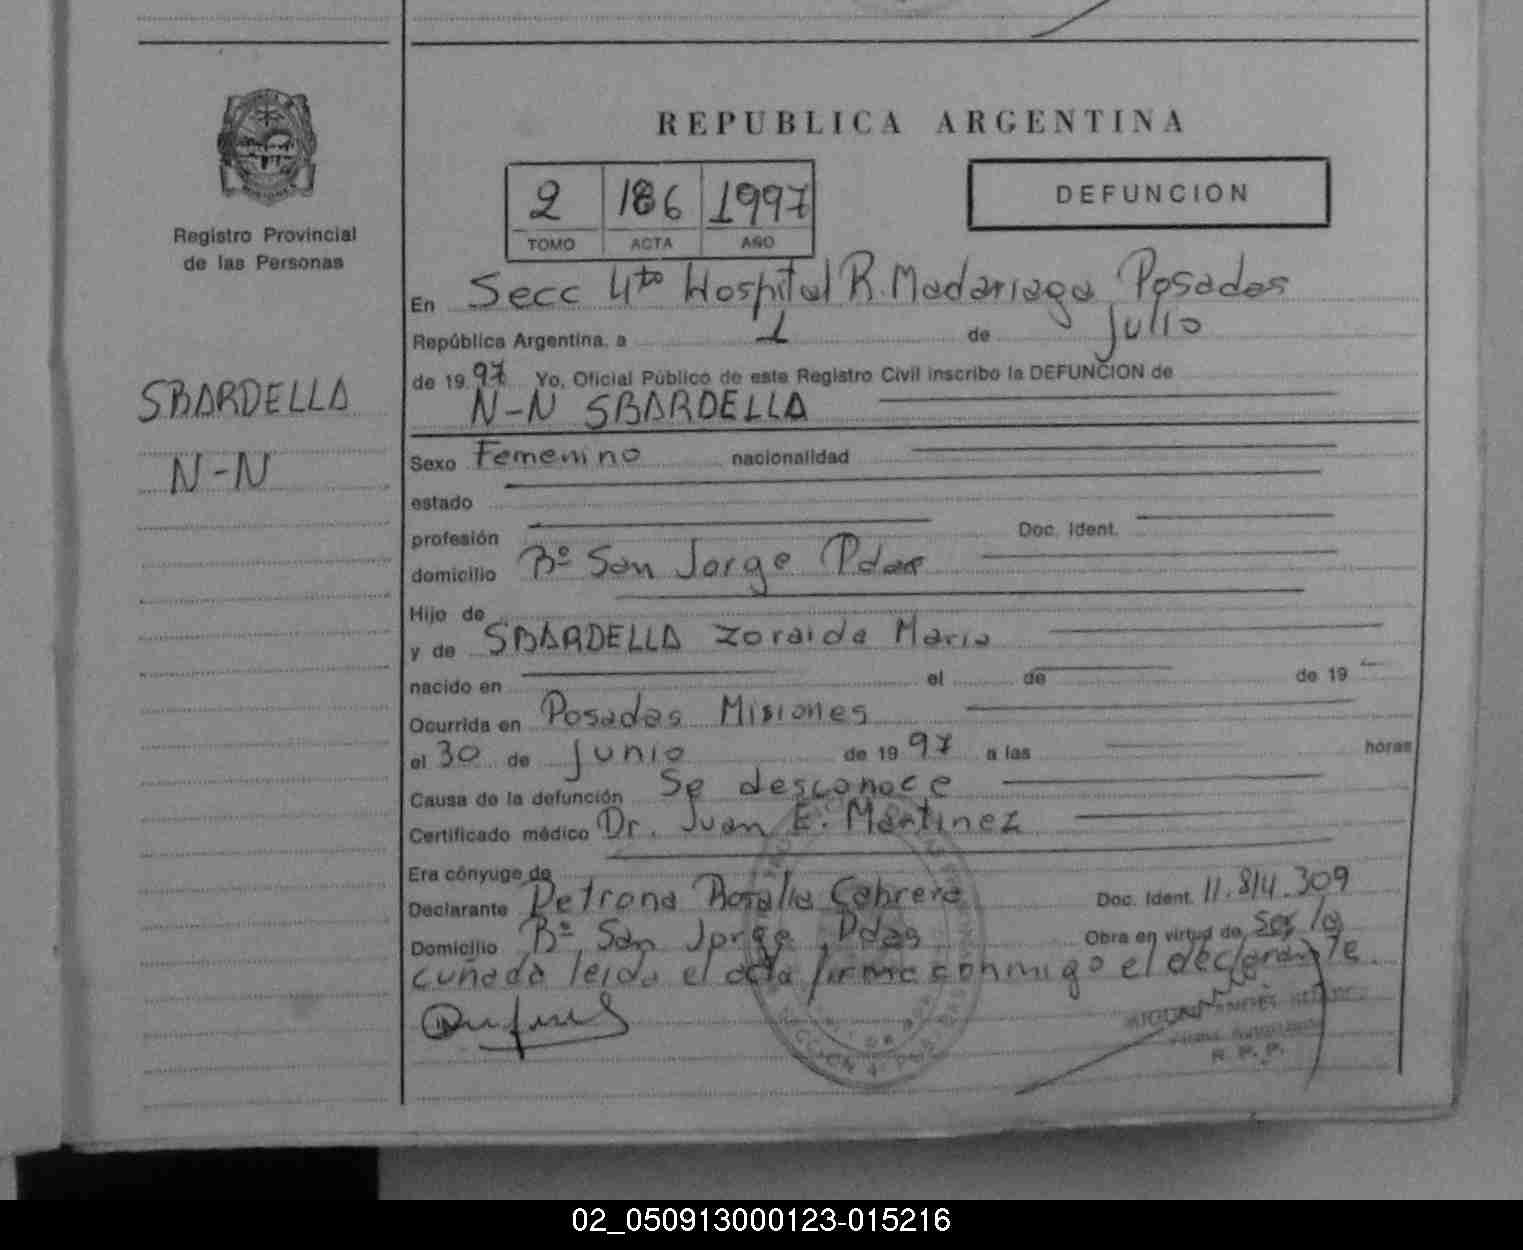 REPUBLICA ARGENTINA
Registro Provincial
de las Personas
2 186 1997
TOMO ACTA AÑO
DEFUNCION
SBARDELLA
N-N
En Secc 4to Hospital R. Madariaga Posadas
República Argentina, a 1 de Julio
de 19 97 Yo, Oficial Público de este Registro Civil inscribo la DEFUNCION de
N-N SBARDELLA
Sexo Femenino nacionalidad
estado
profesión Doc. Ident.
domicilio Bº San Jorge Pdas
Hijo de
y de SBARDELLA Zoraida Maria
nacido en el de de 19
Ocurrida en Posadas Misiones
el 30 de Junio de 19 97 a las horas
Causa de la defunción Se desconoce
Certificado médico Dr. Juan E. Martinez
Era cónyuge de
Declarante Petrona Rosalia Cabrera Doc. Ident. 11.814.309
Domicilio Bº San Jorge Pdas Obra en virtud de ser la
cuñada leida el acta firma conmigo el declarante
R. P. P.
02_050913000123-015216